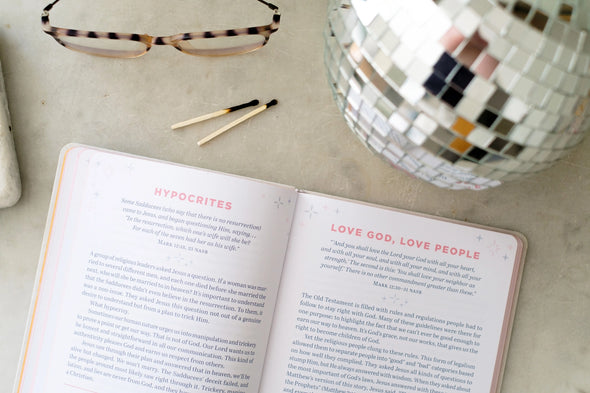 HYPOCRITES
Some Sadducees (who say that there is no resurrection)
came to Jesus, and began questioning Him, saying . . .
"In the resurrection, which one's wife will she be?
For each of the seven had her as his wife."
MARK 12:18, 23 NASB
A group of religious leaders asked Jesus a question. If a woman mar-
ried to several different men, and each one died before she married the
next, who will she be married to in heaven? It's important to understand
that the Sadducees didn't even believe in the resurrection. To them, it
was a non-issue. They asked Jesus this question not out of a genuine
desire to understand but from a plan to trick Him.
What hypocrisy.
Sometimes our human nature urges us into manipulation and trickery
to prove a point or get our way. That is not of God. Our Lord wants us to
be honest and straightforward in all our communication. This kind of
authenticity pleases God and earns us respect from others.
Jesus saw through their plan and answered that in heaven, we'll be
alive but changed. We won't marry. The Sadducees' deceit failed, and
the people around most likely saw right through it. Trickery, manipu-
lation, and lies are never from God, and they have
a Christian.
LOVE GOD, LOVE PEOPLE
"And you shall love the Lord your God with all your heart,
and with all your soul, and with all your mind, and with all your
strength.' The second is this: 'You shall love your neighbor as
yourself.' There is no other commandment greater than these."
MARK 12:30–31 NASB
The Old Testament is filled with rules and regulations people had to
follow to stay right with God. Many of these guidelines were there for
one purpose: to highlight the fact that we can't ever be good enough to
earn our way to heaven. It's God's grace, not our works, that gives us the
right to become children of God.
Yet the religious people clung to these rules. This form of legalism
allowed them to separate people into "good" and "bad" categories based
on how well they complied. They asked Jesus all kinds of questions to
trap Him, but He always answered with wisdom. When they asked about
the most important of God's laws, Jesus answered with these
Matthew's version of this story, Jesus said,
the Prophets" (Matthew